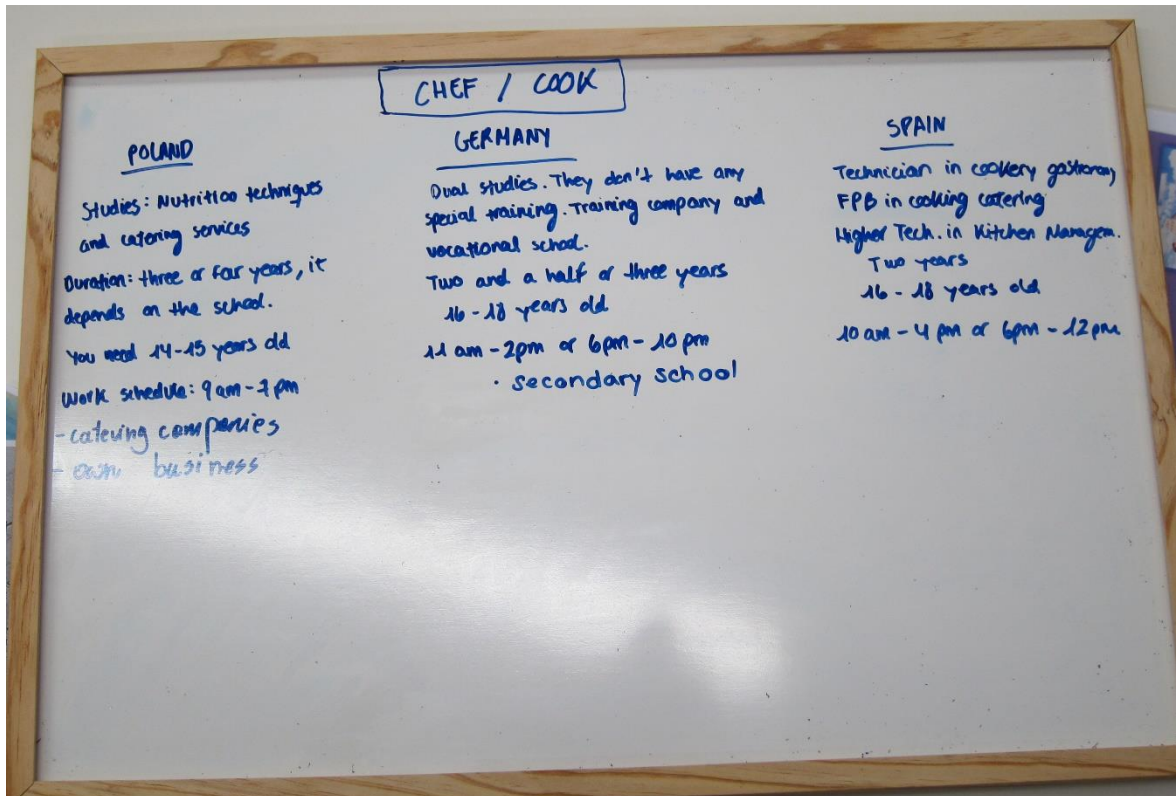 CHEF / COOK
POLAND
Studies: Nutrition techniques
and catering services
Duration: three or four years, it
depends on the school.
You need 14-15 years old
Work schedule: 9am-7pm
- catering companies
- own business
GERMANY
Dual studies. They don't have any
special training. Training company and
vocational school.
Two and a half or three years
16-18 years old
11 am - 2pm or 6pm - 10 pm
· secondary school
SPAIN
Technician in cookery gastronomy
FPB in cooking catering
Higher Tech. in Kitchen Managem.
Two years
16 - 18 years old
10 am - 4 pm or 6pm - 12 pm